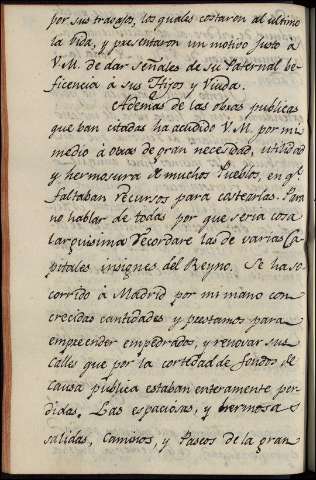 por sus trabajos, los quales costaron al ultimo
la Vida, y presentaron un motivo justo á
V. M. de dar señales de su Paternal be-
ficencia á sus Hijos y Viuda.
Ademas de las obras publicas
que van citadas ha acudido V. M. por mi
medio á obras de gran necesidad, utilidad
y hermosura de muchos Pueblos, en qe
faltaban recursos para costearlas. Para
no hablar de todas por que seria cosa
larguisima recordare las de varias Ca-
pitales insignes del Reyno. Se ha so-
corrido á Madrid por mi mano con
crecidas cantidades y prestamos para
emprender empedrados, y renovar sus
Calles que por la cortedad de fondos de
causa publica estaban enteramente per-
didas. Las espaciosas, y hermosas
salidas, Caminos, y Paseos de la gran